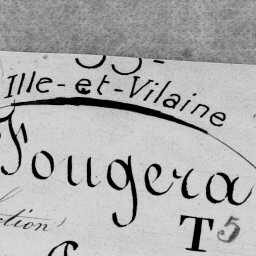 35-
Ille-et-Vilaine
Fougera
ction
T 5